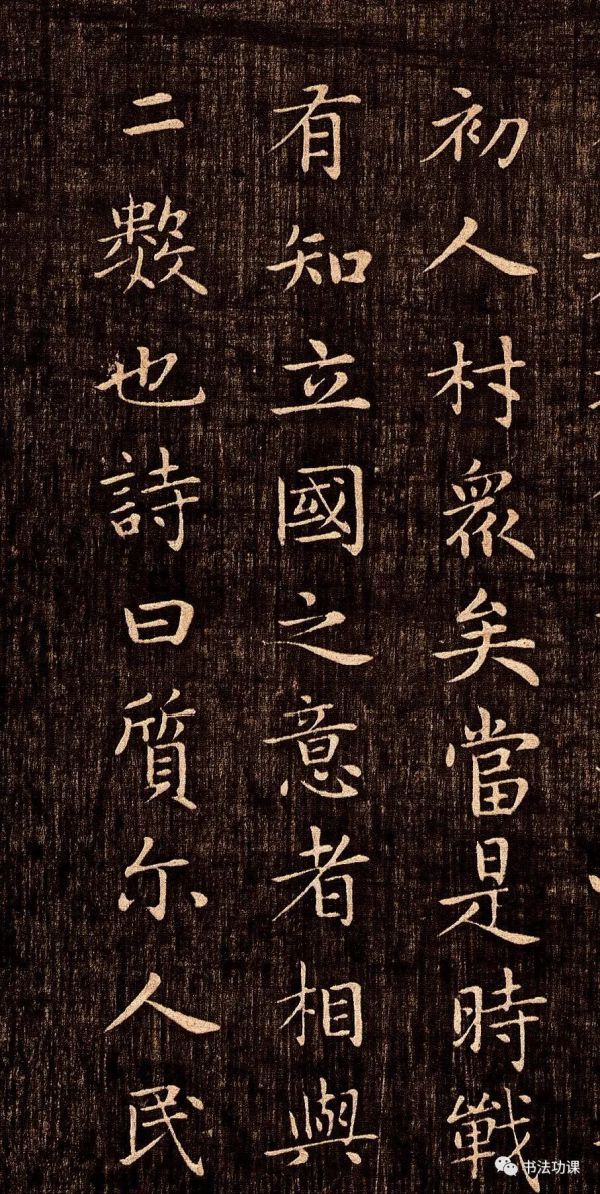 初人村眾矣當是時戰
有知立國之意者相與
二數也詩曰質尔人民
书法功课